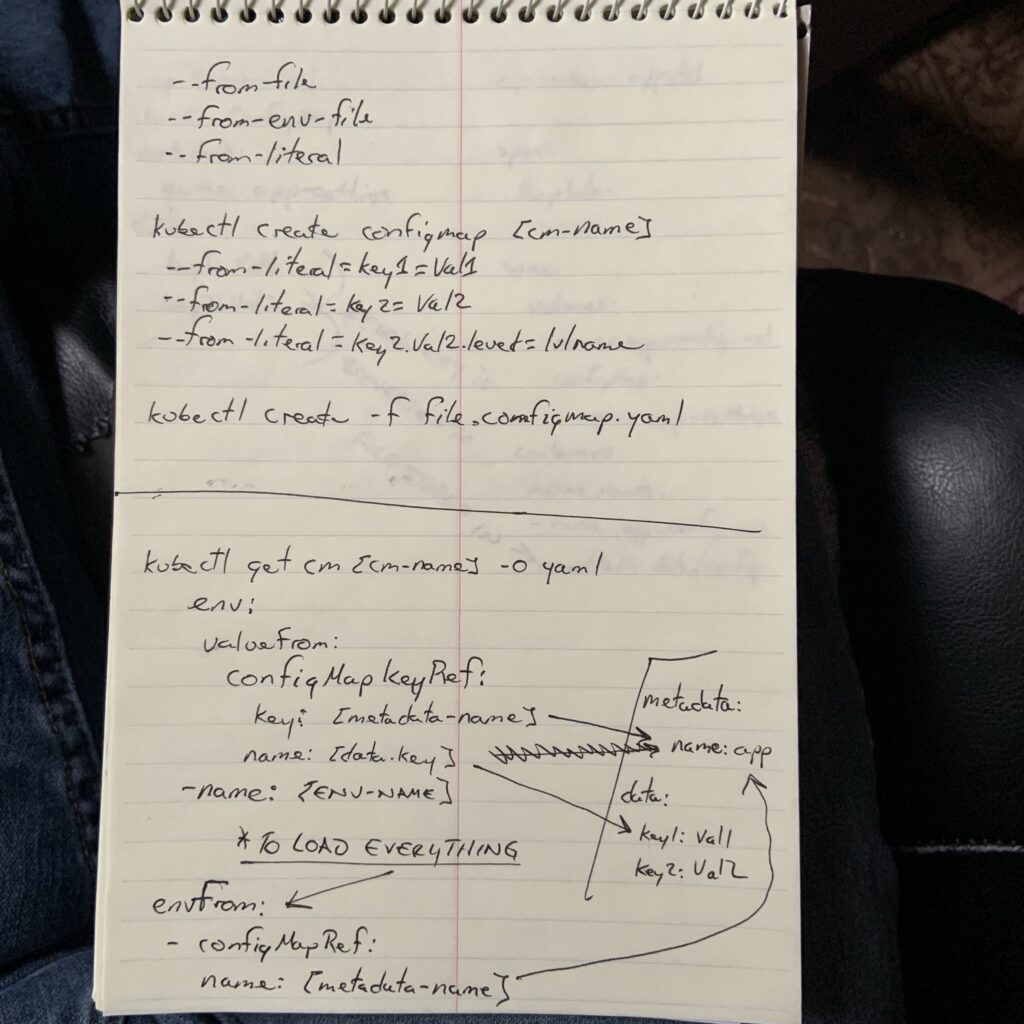 --from-file
--from-env-file
--from-literal
kubectl create configmap [cm-name]
--from-literal=key1=Val1
--from-literal=key2=Val2
--from-literal=key2.Val2.level=lvlname
kubectl create -f file.configmap.yaml
kubectl get cm [cm-name] -o yaml
env:
valueFrom:
configMapKeyRef:
key: [metadata-name]
name: [data.key]
-name: [ENV-NAME]
metadata:
name: app
data:
key1: Val1
key2: Val2
*TO LOAD EVERYTHING
envFrom:
- configMapRef:
name: [metadata-name]